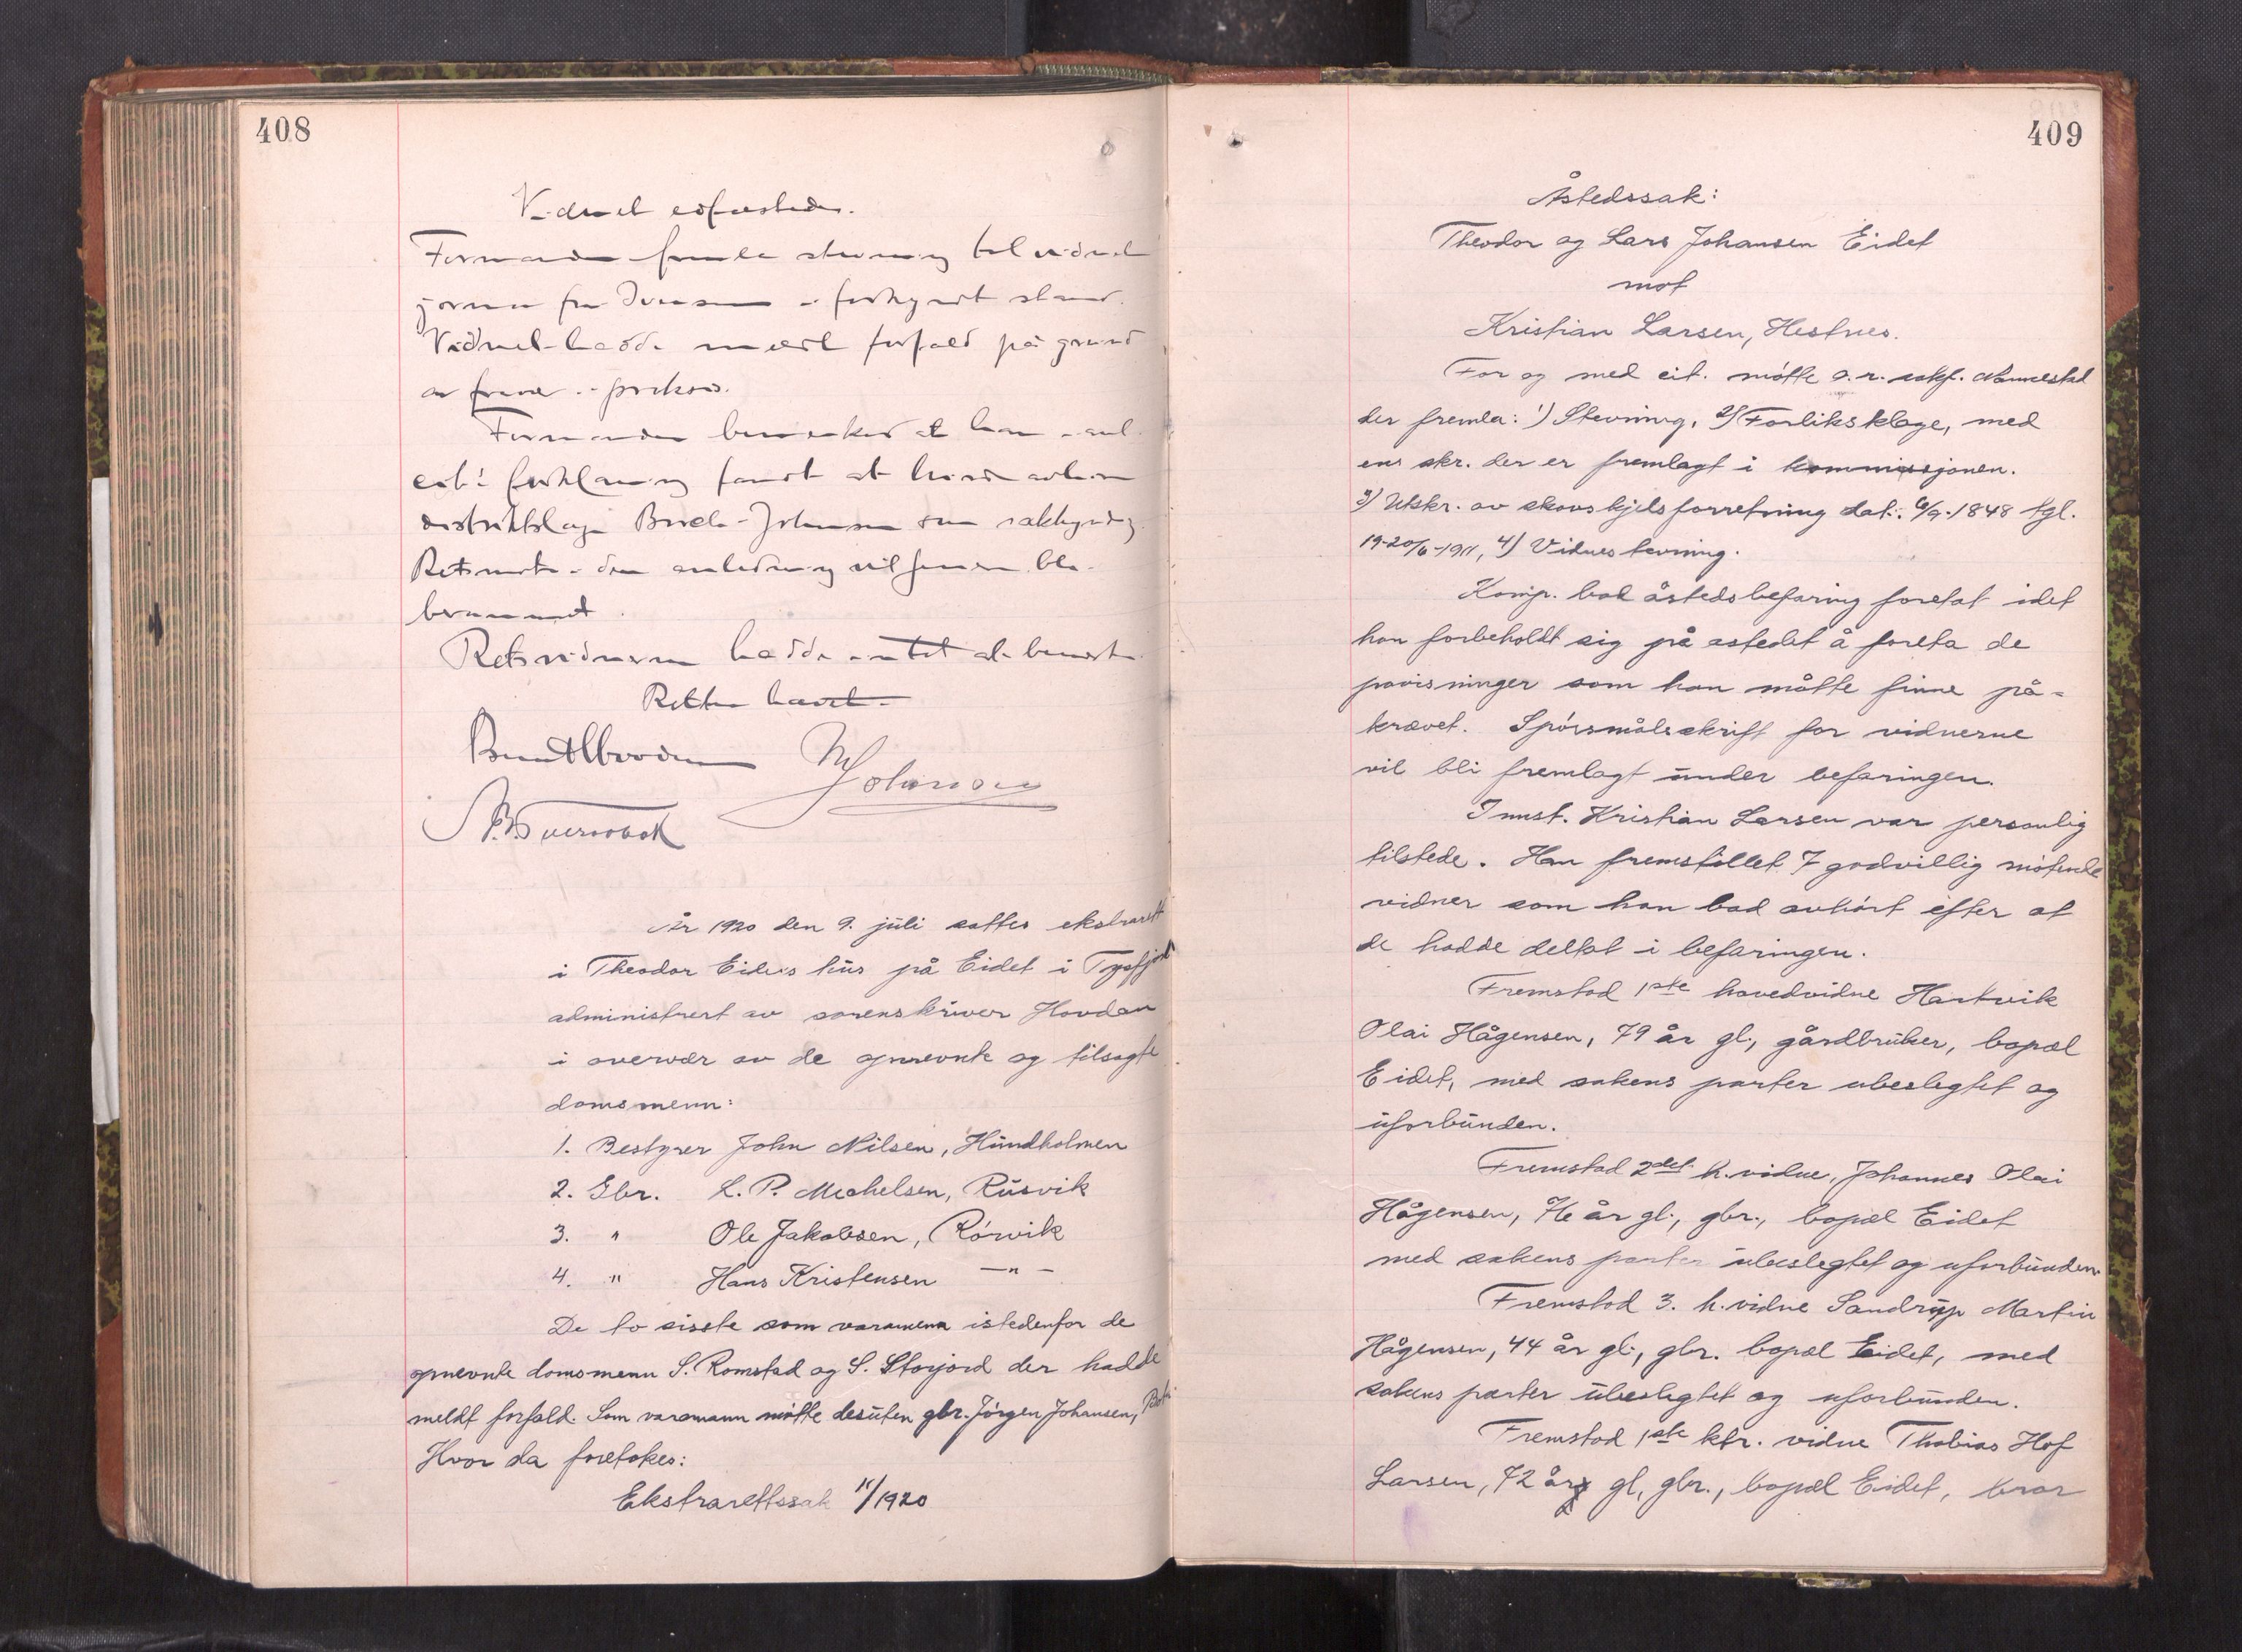 408
Vidnet edfæstedes.
Formanden fremla stevning til vidnet
i forkynt stand.
Vidnet hadde meldt forfald på grund
av
Formanden bemerket at han
forklaring fandt at burde avhøre
distriktslæge Johnsen som sakkyndig
Retsmøte i den anledning vil senere bli
berammet.
Retsvidnerne hadde intet at bemerke.
Retten hævet.
Johnsen
År 1920 den 9. juli sattes ekstrarett
i Theodor Eidets hus på Eidet i Tysfjord
administrert av sorenskriver Hovdan
i overvær av de opnevnte og tilsagte
domsmenn:
1. Bestyrer John Nilsen, Hundholmen
2. Gbr. L. P. Michelsen, Rusvik
3. " Ole Jakobsen, Rórvik
4. " Hans Kristensen —"—
De to siste som varamenn istedenfor de
opnevnte domsmenn S. Romstad og S. Storjord der hadde
meldt forfald. Som varamann møtte desuten gbr. Jörgen Johansen,
Hvor da foretokes:
Ekstrarettssak 11/1920
409
Åstedssak:
Theodor og Lars Johansen Eidet
mot
Kristian Larsen, Hestnes.
For og med cit. møtte o.r. sakf. Nannestad
der fremla: 1) Stevning, 2) Forliksklage, med
ens skr. der er fremlagt i kommissjonen.
3) Utskr. av skovskjelsforretning dat. 6/9-1848 tgl.
19-20/6-1911, 4) Vidnestevning.
Komp. bad åstedsbefaring foretat idet
han forbeholdt sig på astedet å foreta de
påvisninger som han måtte finne på-
krævet. Spörsmålsskrift for vidnerne
vil bli fremlagt under befaringen.
Innst. Kristian Larsen var personlig
tilstede. Han fremstillet 7 godvillig møtende
vidner som han bad avhört efter at
de hadde deltat i befaringen.
Fremstod 1ste hovedvidne Hartvik
Olai Hågensen, 79 år gl., gårdbruker, bopæl
Eidet, med sakens parter ubeslegtet og
uforbunden.
Fremstod 2det h.vidne, Johannes Olai
Hågensen, 76 år gl., gbr., bopæl Eidet
med sakens parter ubeslegtet og uforbunden.
Fremstod 3. h.vidne Sandrup Martin
Hågensen, 44 år gl., gbr. bopæl Eidet, med
sakens parter ubeslegtet og uforbunden.
Fremstod 1ste ktr. vidne Thobias Hof
Larsen, 72 år gl, gbr., bopæl Eidet, bror